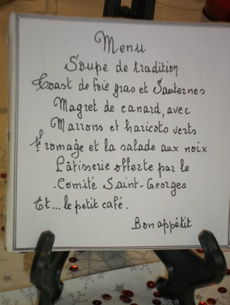 Menu
Soupe de tradition
Toast de foie gras et Sauternes
Magret de canard, avec
Marrons et haricots verts
Fromage et la salade aux noix
Pâtisserie offerte par le
Comité Saint-Georges
Et... le petit café.
Bon appétit